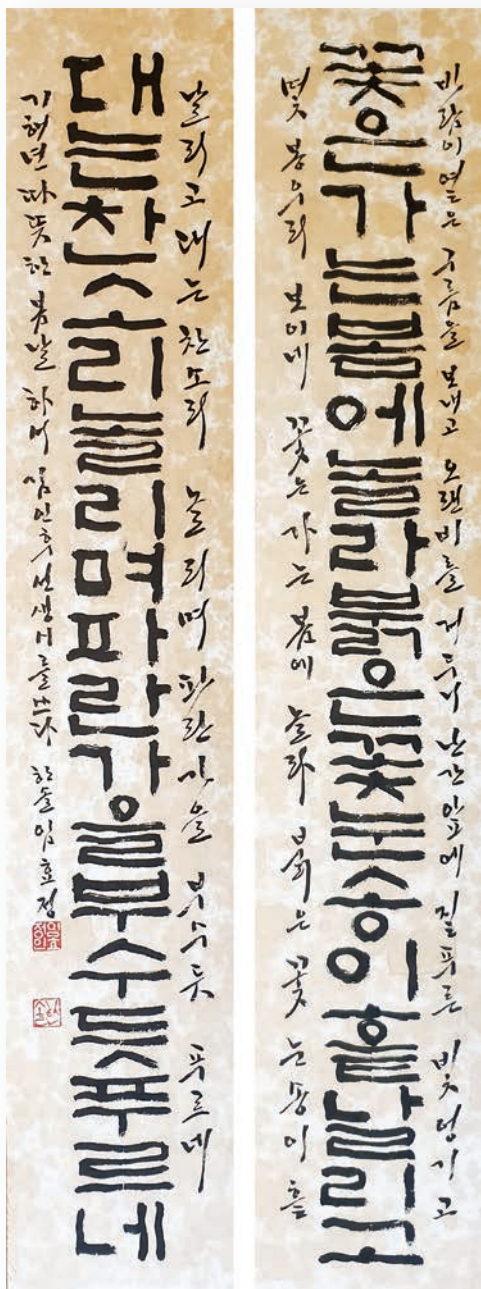 바람이 옅은 구름을 보내고 오랜비를 거두니 난간앞에 짙푸른 빛 덩기고
꽃은가는봄에놀라붉은꽃눈송이흩날리고
몇 봉우리 보이네 꽃은 가는 봄에 놀라 붉은 꽃 눈송이 흩
날리고 대는 찬소리 놀리며 파란가을 부수듯 푸르네
대는찬소리놀리며파란가을부수듯푸르네
기해년 따뜻한 봄날 하서 김인후 선생시를 쓰다 한솔 임효정